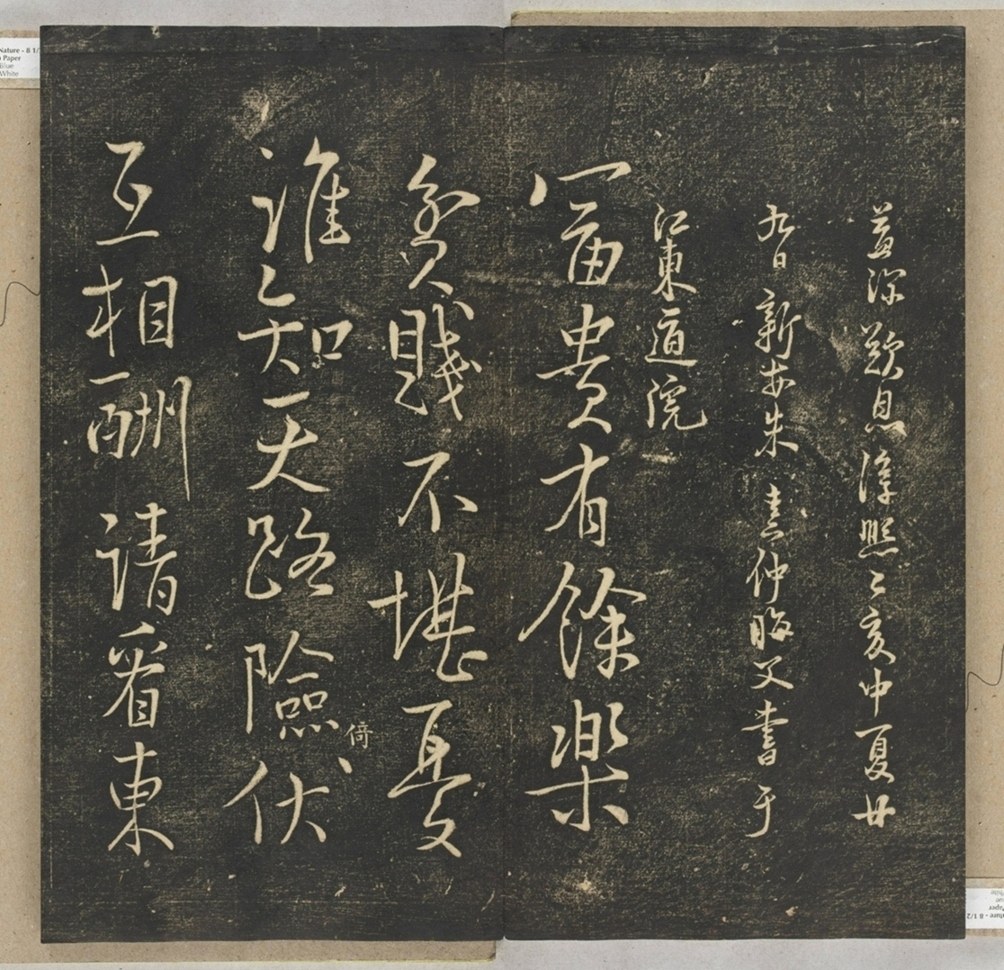 益深歎息淳熙己亥中夏廿
九日新安朱熹仲晦父書于
江東道院
富貴有餘樂
貧賤不堪憂
誰知天路險倚伏
互相酬請看東
Nature - 8 1/
Paper
Blue
White